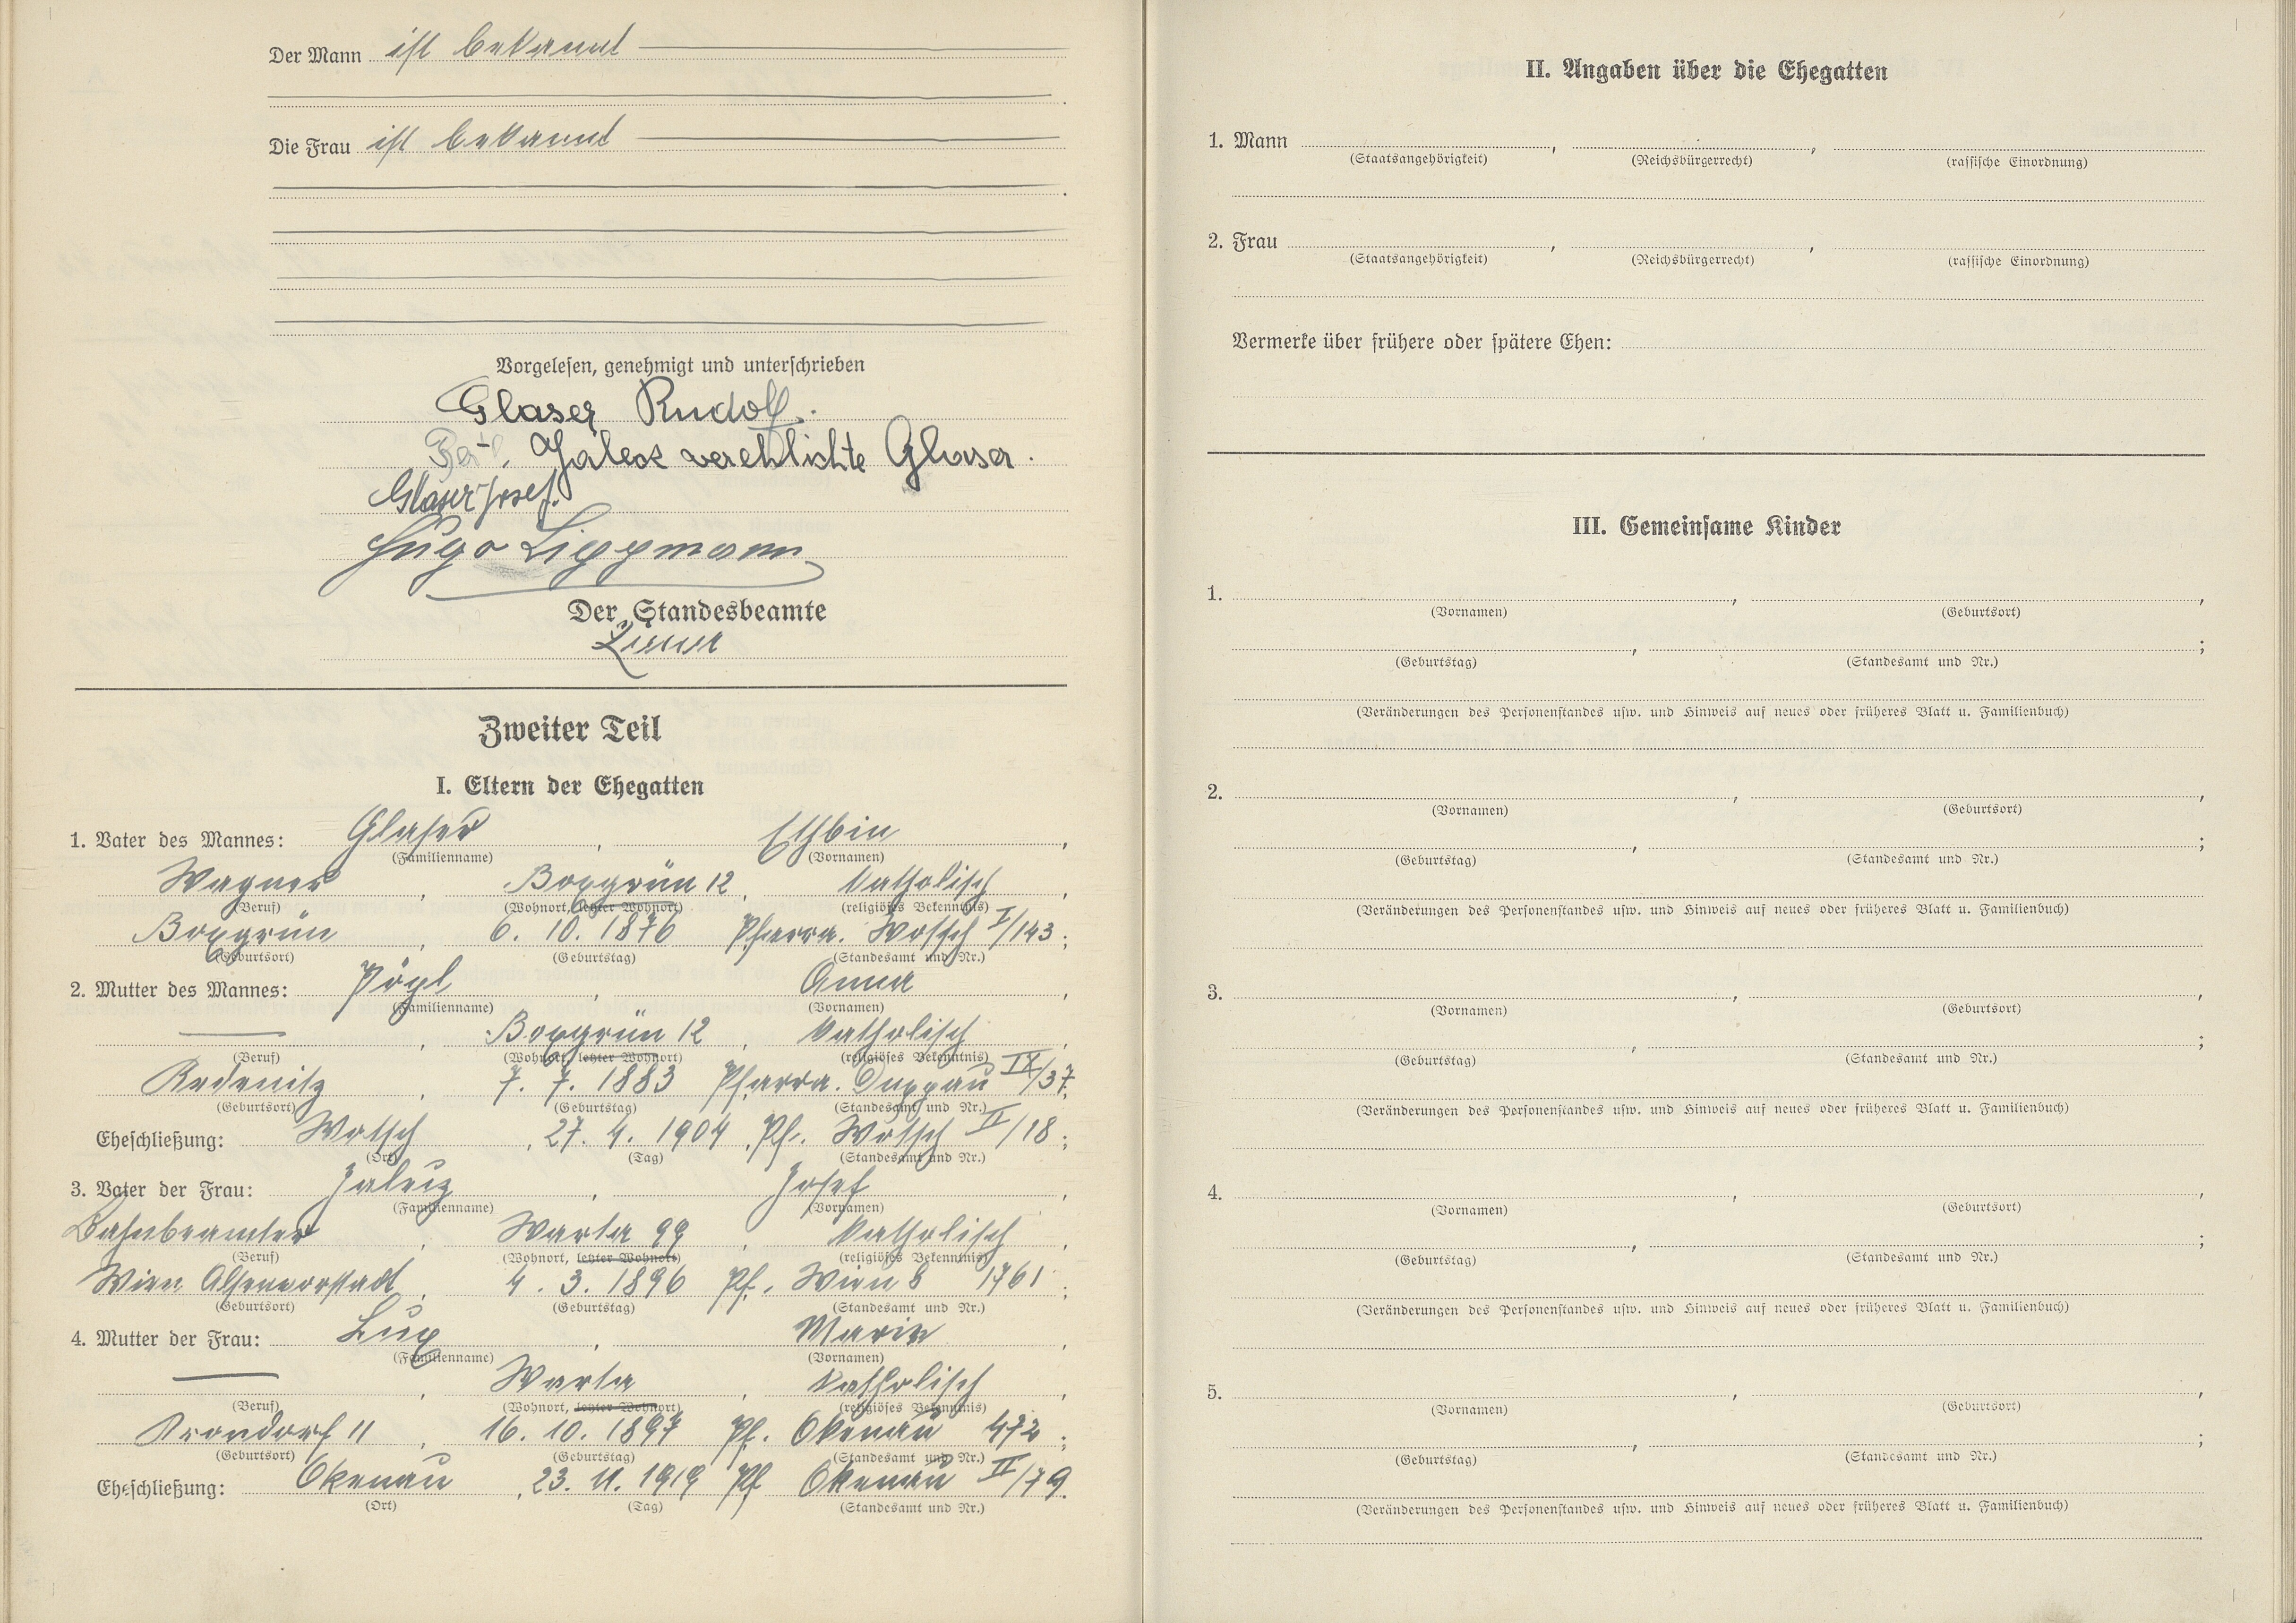 Der Mann ist bekannt
Die Frau ist bekannt
Vorgelesen, genehmigt und unterschrieben
Glaser Rudolf.
verehlichte Glaser.
Glaser Josef.
Hugo Lippmann
Der Standesbeamte
Zweiter Teil
I. Eltern der Ehegatten
1. Vater des Mannes: Glaser, Ethbin,
(Familienname) (Vornamen)
Wagner, Boxgrün 12, katholisch,
(Beruf) (Wohnort, letzter Wohnort) (religiöses Bekenntnis)
Boxgrün, 6. 10. 1876 Pfarra. Wotsch I/143;
(Geburtsort) (Geburtstag) (Standesamt und Nr.)
2. Mutter des Mannes: Pögl, Anna,
(Familienname) (Vornamen)
— , Boxgrün 12, katholisch,
(Beruf) (Wohnort, letzter Wohnort) (religiöses Bekenntnis)
Redenitz, 7. 7. 1883 Pfarra. Duppau IX/37.
(Geburtsort) (Geburtstag) (Standesamt und Nr.)
Eheschließung: Wotsch, 27. 4. 1904, Pf. Wotsch II/18;
(Ort) (Tag) (Standesamt und Nr.)
3. Vater der Frau: Josef,
(Familienname) (Vornamen)
Bahnbeamter, Warta 99, katholisch,
(Beruf) (Wohnort, letzter Wohnort) (religiöses Bekenntnis)
Wien Alservorstadt, 4. 3. 1896 Pf. Wien 8 1761;
(Geburtsort) (Geburtstag) (Standesamt und Nr.)
4. Mutter der Frau: Lux, Marie
(Familienname) (Vornamen)
— , Warta, katholisch,
(Beruf) (Wohnort, letzter Wohnort) (religiöses Bekenntnis)
Krondorf 11, 16. 10. 1897 Pf. Okenau 472;
(Geburtsort) (Geburtstag) (Standesamt und Nr.)
Eheschließung: Okenau, 23. 11. 1919 Pf Okenau II/79.
(Ort) (Tag) (Standesamt und Nr.)
II. Angaben über die Ehegatten
1. Mann , ,
(Staatsangehörigkeit) (Reichsbürgerrecht) (rassische Einordnung)
2. Frau , ,
(Staatsangehörigkeit) (Reichsbürgerrecht) (rassische Einordnung)
Vermerke über frühere oder spätere Ehen:
III. Gemeinsame Kinder
1. , ,
(Vornamen) (Geburtsort)
, ;
(Geburtstag) (Standesamt und Nr.)
(Veränderungen des Personenstandes usw. und Hinweis auf neues oder früheres Blatt u. Familienbuch)
2. , ,
(Vornamen) (Geburtsort)
, ;
(Geburtstag) (Standesamt und Nr.)
(Veränderungen des Personenstandes usw. und Hinweis auf neues oder früheres Blatt u. Familienbuch)
3. , ,
(Vornamen) (Geburtsort)
, ;
(Geburtstag) (Standesamt und Nr.)
(Veränderungen des Personenstandes usw. und Hinweis auf neues oder früheres Blatt u. Familienbuch)
4. , ,
(Vornamen) (Geburtsort)
, ;
(Geburtstag) (Standesamt und Nr.)
(Veränderungen des Personenstandes usw. und Hinweis auf neues oder früheres Blatt u. Familienbuch)
5. , ,
(Vornamen) (Geburtsort)
, ;
(Geburtstag) (Standesamt und Nr.)
(Veränderungen des Personenstandes usw. und Hinweis auf neues oder früheres Blatt u. Familienbuch)